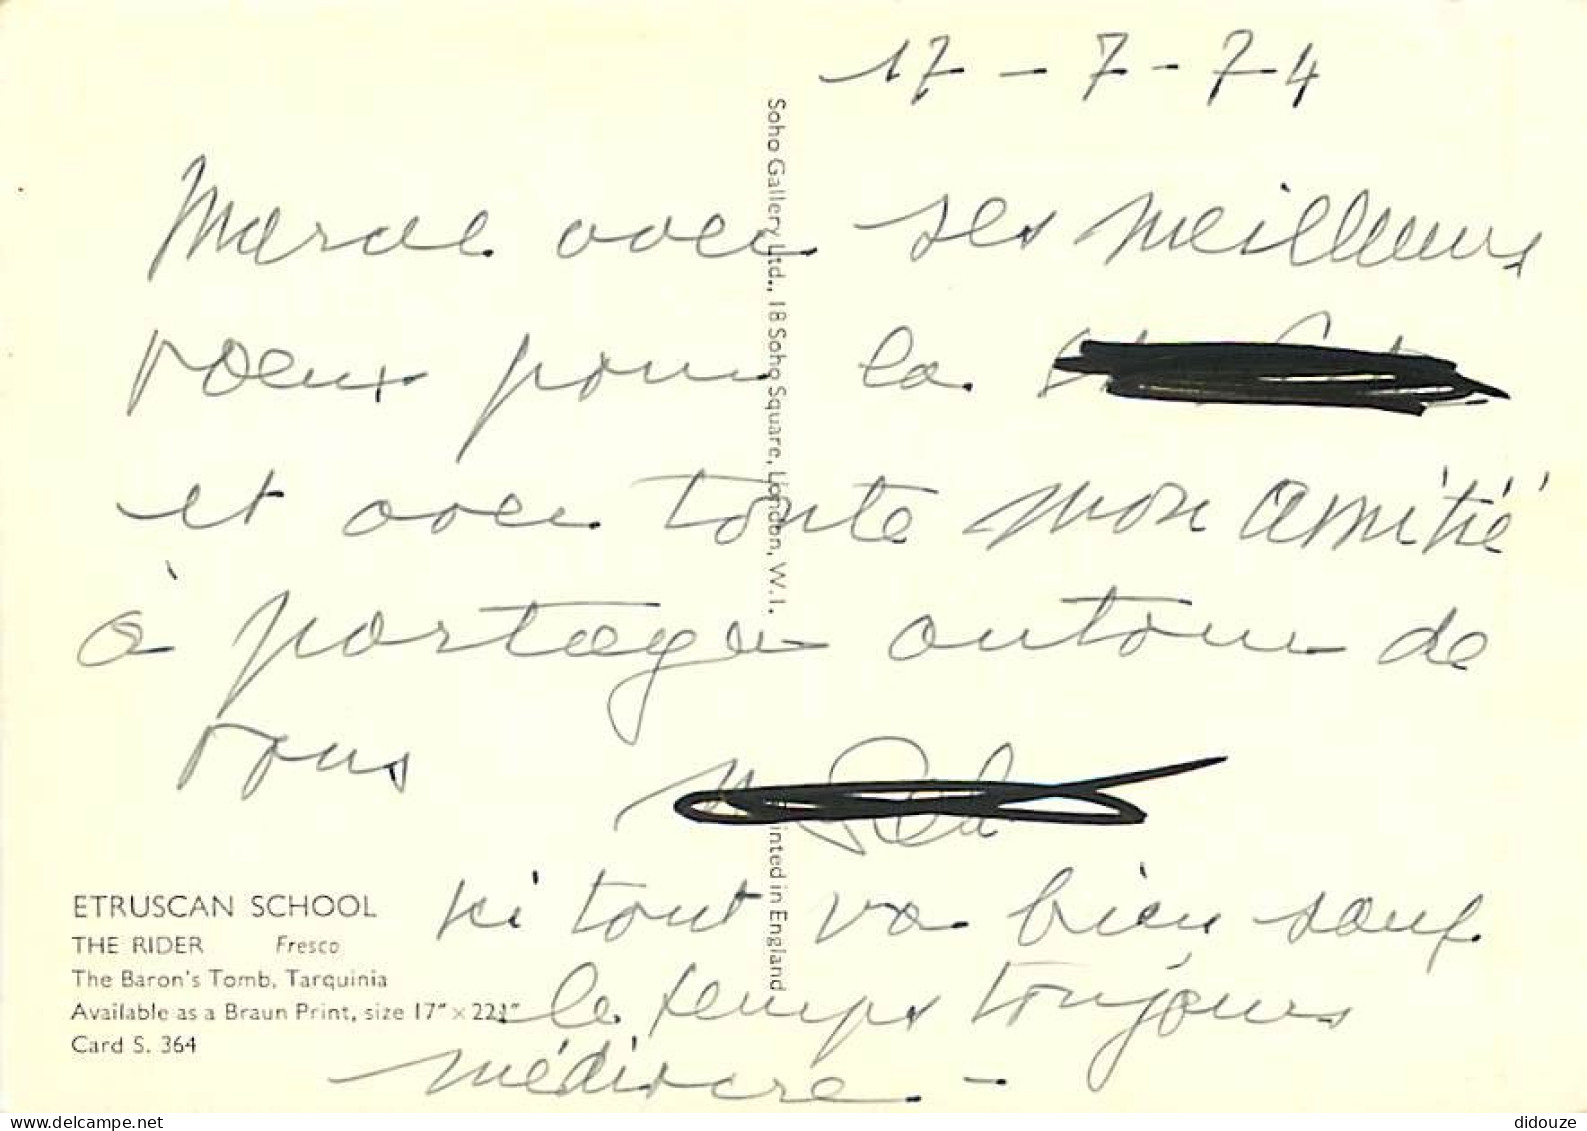 17-7-74
avec ses meilleurs
voeux pour la
et avec toute mon amitié
à partager autour de
vous
ici tout va bien sauf
le temps toujours
médiocre -
ETRUSCAN SCHOOL
THE RIDER Fresco
The Baron's Tomb, Tarquinia
Available as a Braun Print, size 17" × 22½"
Card S. 364
Soho Gallery Ltd., 18 Soho Square, London, W.1.
inted in England
didouze